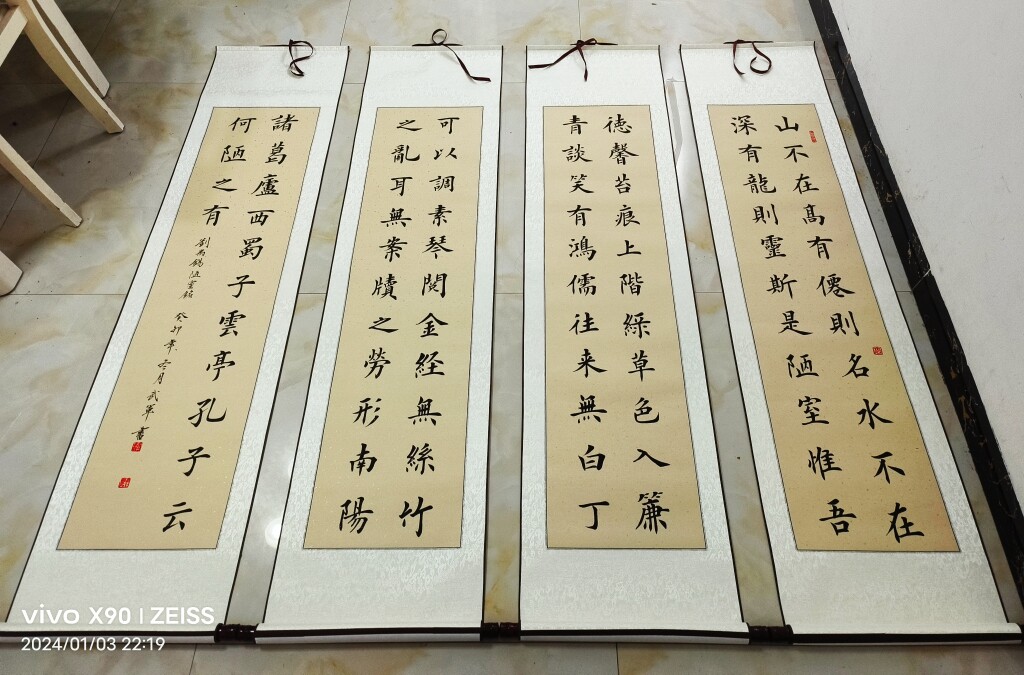 山不在髙有僊則名水不在
深有龍則靈斯是陋室惟吾
徳馨苔痕上階綵草色入簾
青談笑有鴻儒往来無白丁
可以調素琴閲金経無絲竹
之亂耳無案牘之勞形南陽
諸葛廬西蜀子雲亭孔子云
何陋之有
劉禹錫陋室銘
癸卯年冬月武軍書
vivo X90 | ZEISS
2024/01/03 22:19